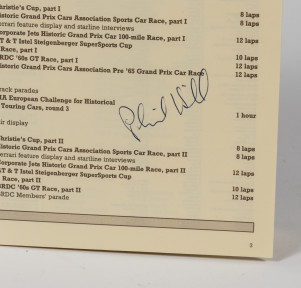 hristie's Cup, part I
istoric Grand Prix Cars Association Sports Car Race, part I 8 laps
errari feature display and starline interviews
orporate Jets Historic Grand Prix Car 100-mile Race, part I 12 laps
T & T Istel Steigenberger SuperSports Cup
Race, part I 10 laps
RDC '60s GT Race, part I 12 laps
istoric Grand Prix Cars Association Pre '65 Grand Prix Car Race 12 laps
rack parades
IA European Challenge for Historical
Touring Cars, round 3 1 hour
ir display
Phil Hill
hristie's Cup, part II 8 laps
istoric Grand Prix Cars Association Sports Car Race, part II 8 laps
errari feature display and starline interviews
orporate Jets Historic Grand Prix Car 100-mile Race, part II 12 laps
T & T Istel Steigenberger SuperSports Cup
Race, part II 10 laps
RDC '60s GT Race, part II 12 laps
RDC Members' parade
3